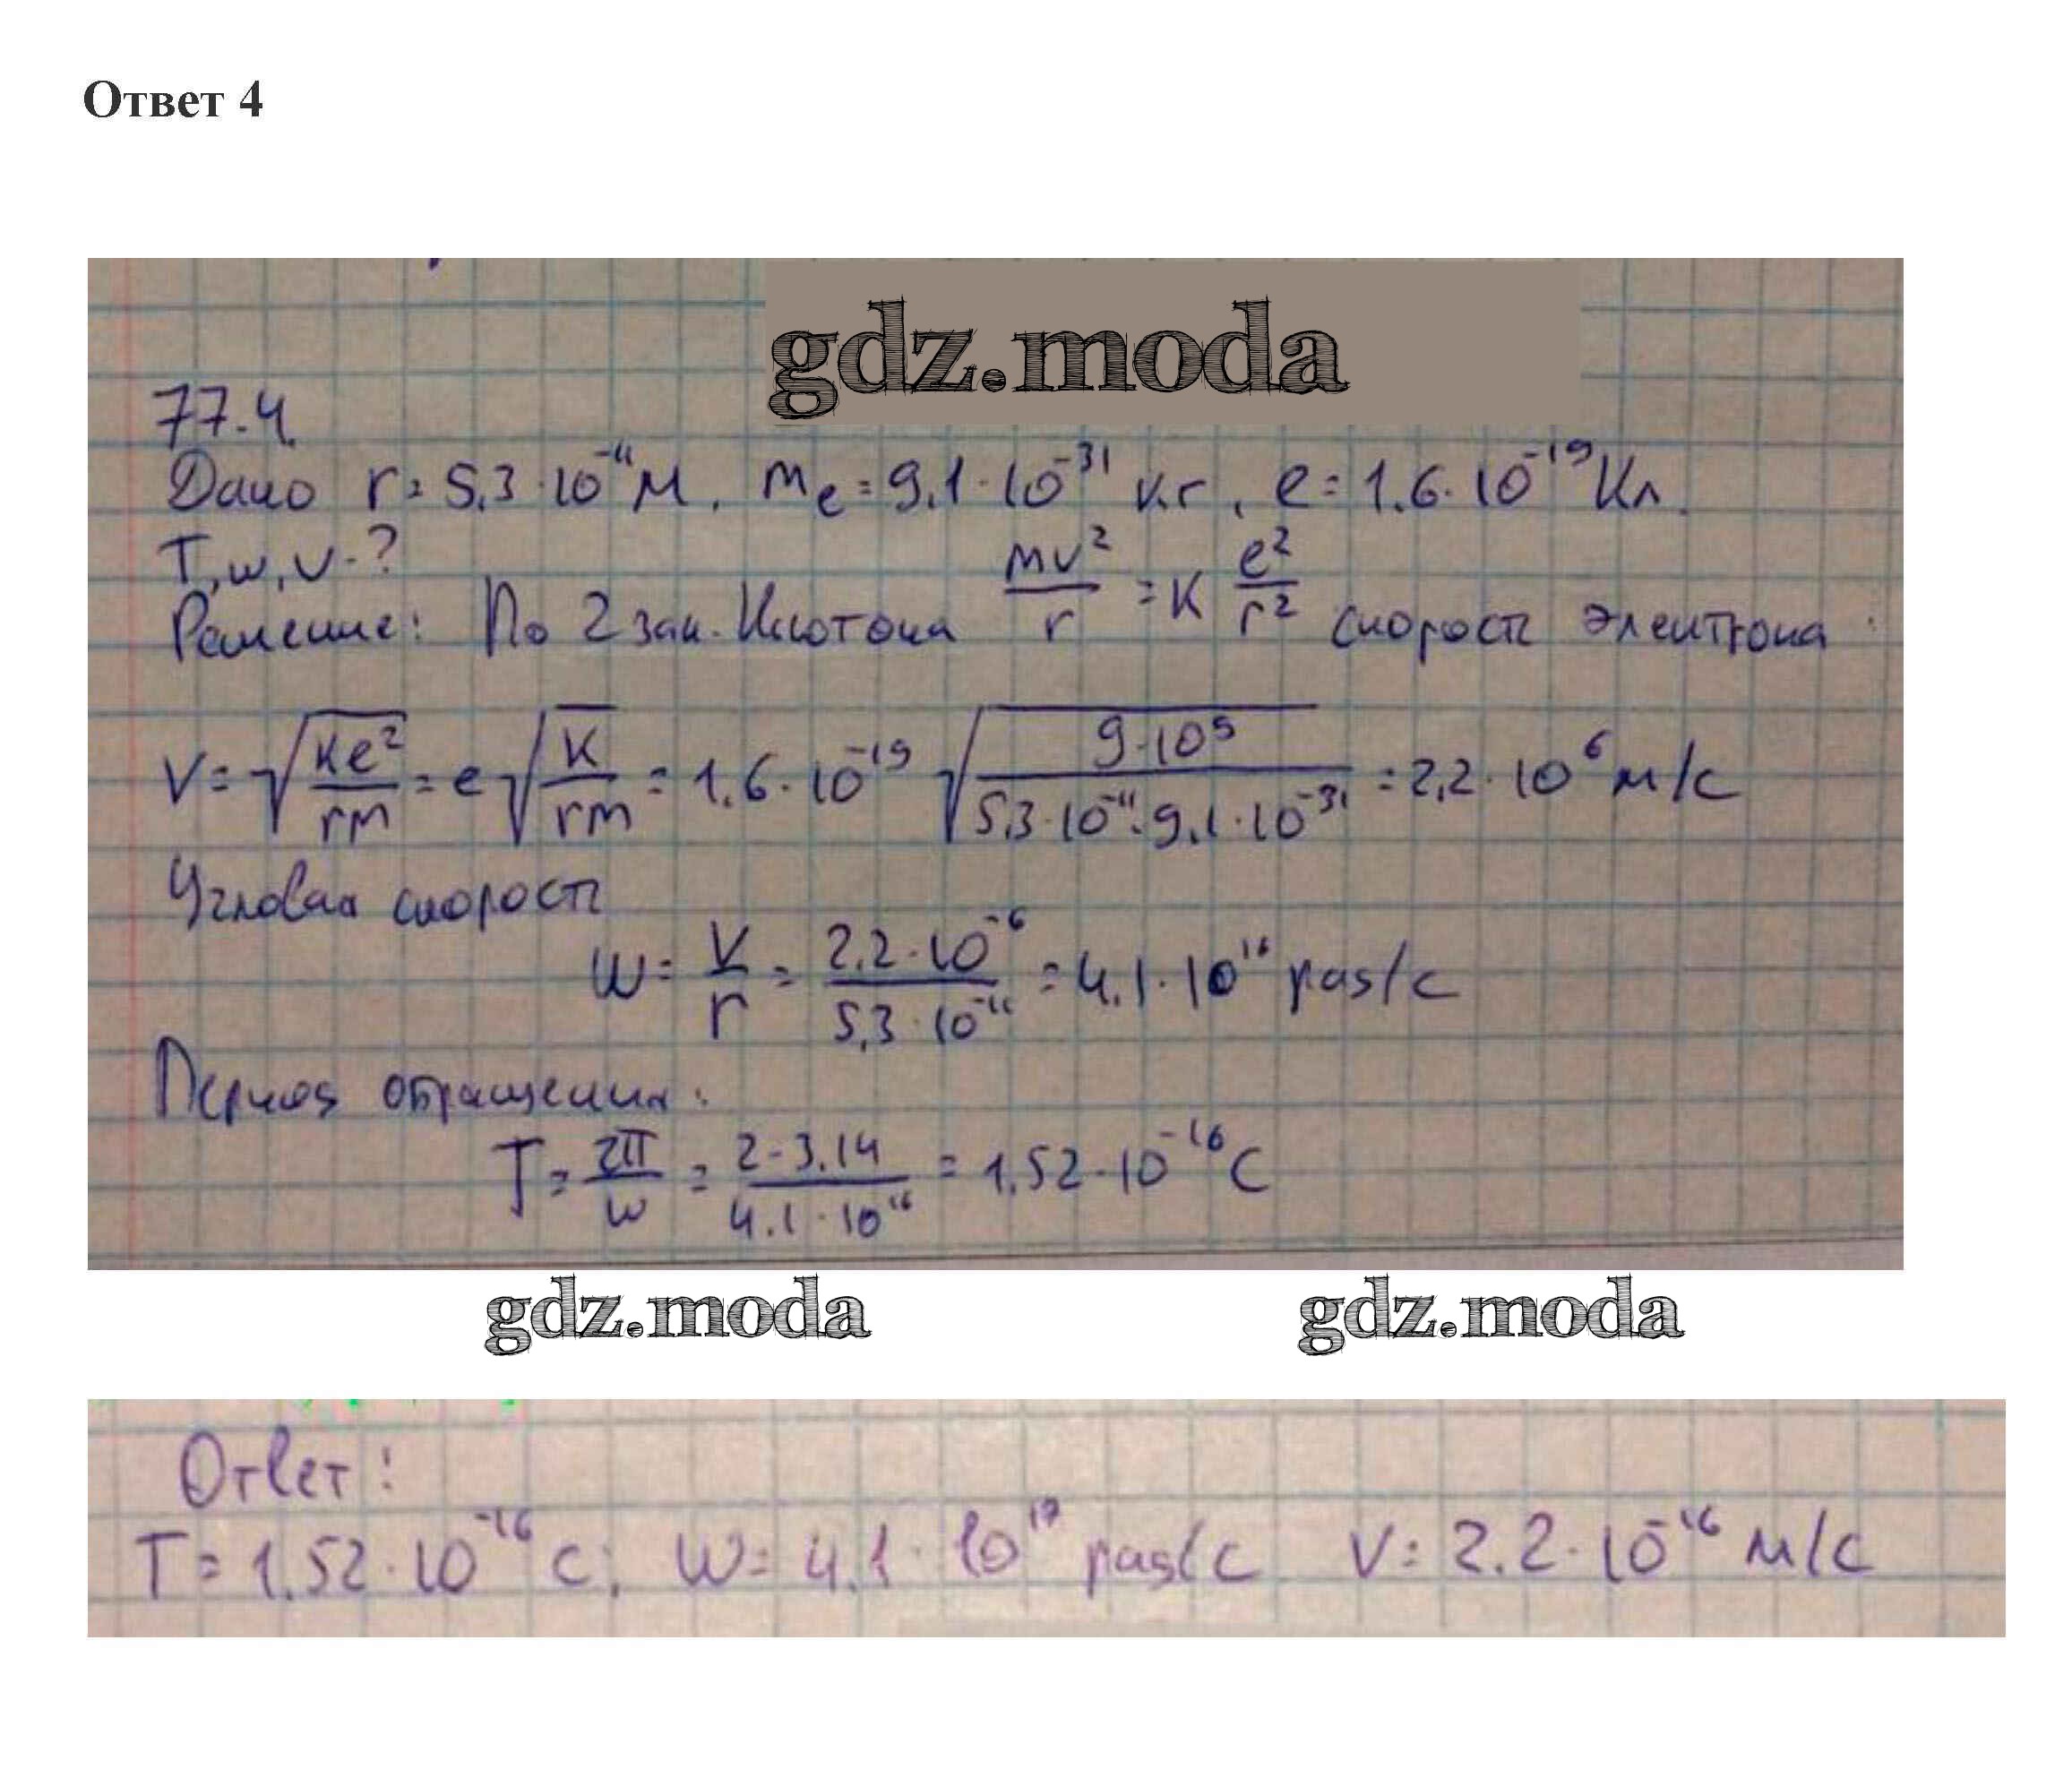 Ответ 4
gdz.moda
77.4.
Дано r = 5,3·10⁻¹¹ м, mₑ = 9,1·10⁻³¹ кг, e = 1.6·10⁻¹⁹ Кл.
T, w, v - ?
Решение: По 2 зак. Ньютона mv²/r = K e²/r² скорость электрона:
V = √(Ke²/rm) = e√(K/rm) = 1.6·10⁻¹⁹ √(9·10⁹/(5,3·10⁻¹¹·9,1·10⁻³¹)) = 2,2·10⁶ м/с
Угловая скорость
w = V/r = 2,2·10⁻⁶/5,3·10⁻¹¹ = 4,1·10¹⁶ рад/с
Период обращения:
T = 2π/w = 2·3,14/4.1·10¹⁶ = 1,52·10⁻¹⁶ С
gdz.moda gdz.moda
Ответ:
T = 1.52·10⁻¹⁶ с; w = 4.1·10¹⁷ рад/с V = 2.2·10⁻¹⁶ м/с